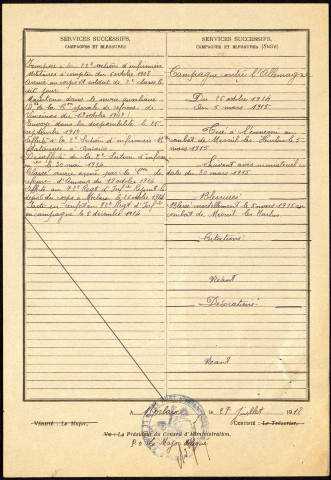 SERVICES SUCCESSIFS,
CAMPAGNES ET BLESSURES
militaires à compter du 6 octobre 1908
Arrivé au corps et soldat de 2e classe le
dit jour
Maintenu dans le service auxiliaire
Vincennes du 19 octobre 1909
Envoyé dans la disponibilité le 25
septembre 1910
militaires à
le 30 mai 1914
Classé service armé par la Con de
réforme d'Amiens du 19 octobre 1914
Affecté au 72e Regt d'Infie Rejoint le
dépôt du corps à Morlaix le 25 octobre 1914
Parti en renfort au 72e Regt d'Infie
en campagne le 5 décembre 1914
SERVICES SUCCESSIFS,
CAMPAGNES ET BLESSURES (Suite)
Campagne contre l'Allemagne
Du 25 octobre 1914
au 5 mars 1915
Tué à l'ennemi au
combat de Mesnil les Hurlus le 5
mars 1915
Suivant avis ministériel en
date du 30 mars 1915
Blessures:
Blessé mortellement le 5 mars 1915 au
combat de Mesnil les Hurlus
Citations:
Néant
Décorations:
Néant
A Morlaix le 27 juillet 1918
Vérifié: Le Major,
Certifié: Le Trésorier,
Vu: Le Président du Conseil d'Administration,
P. o Le Major délégué